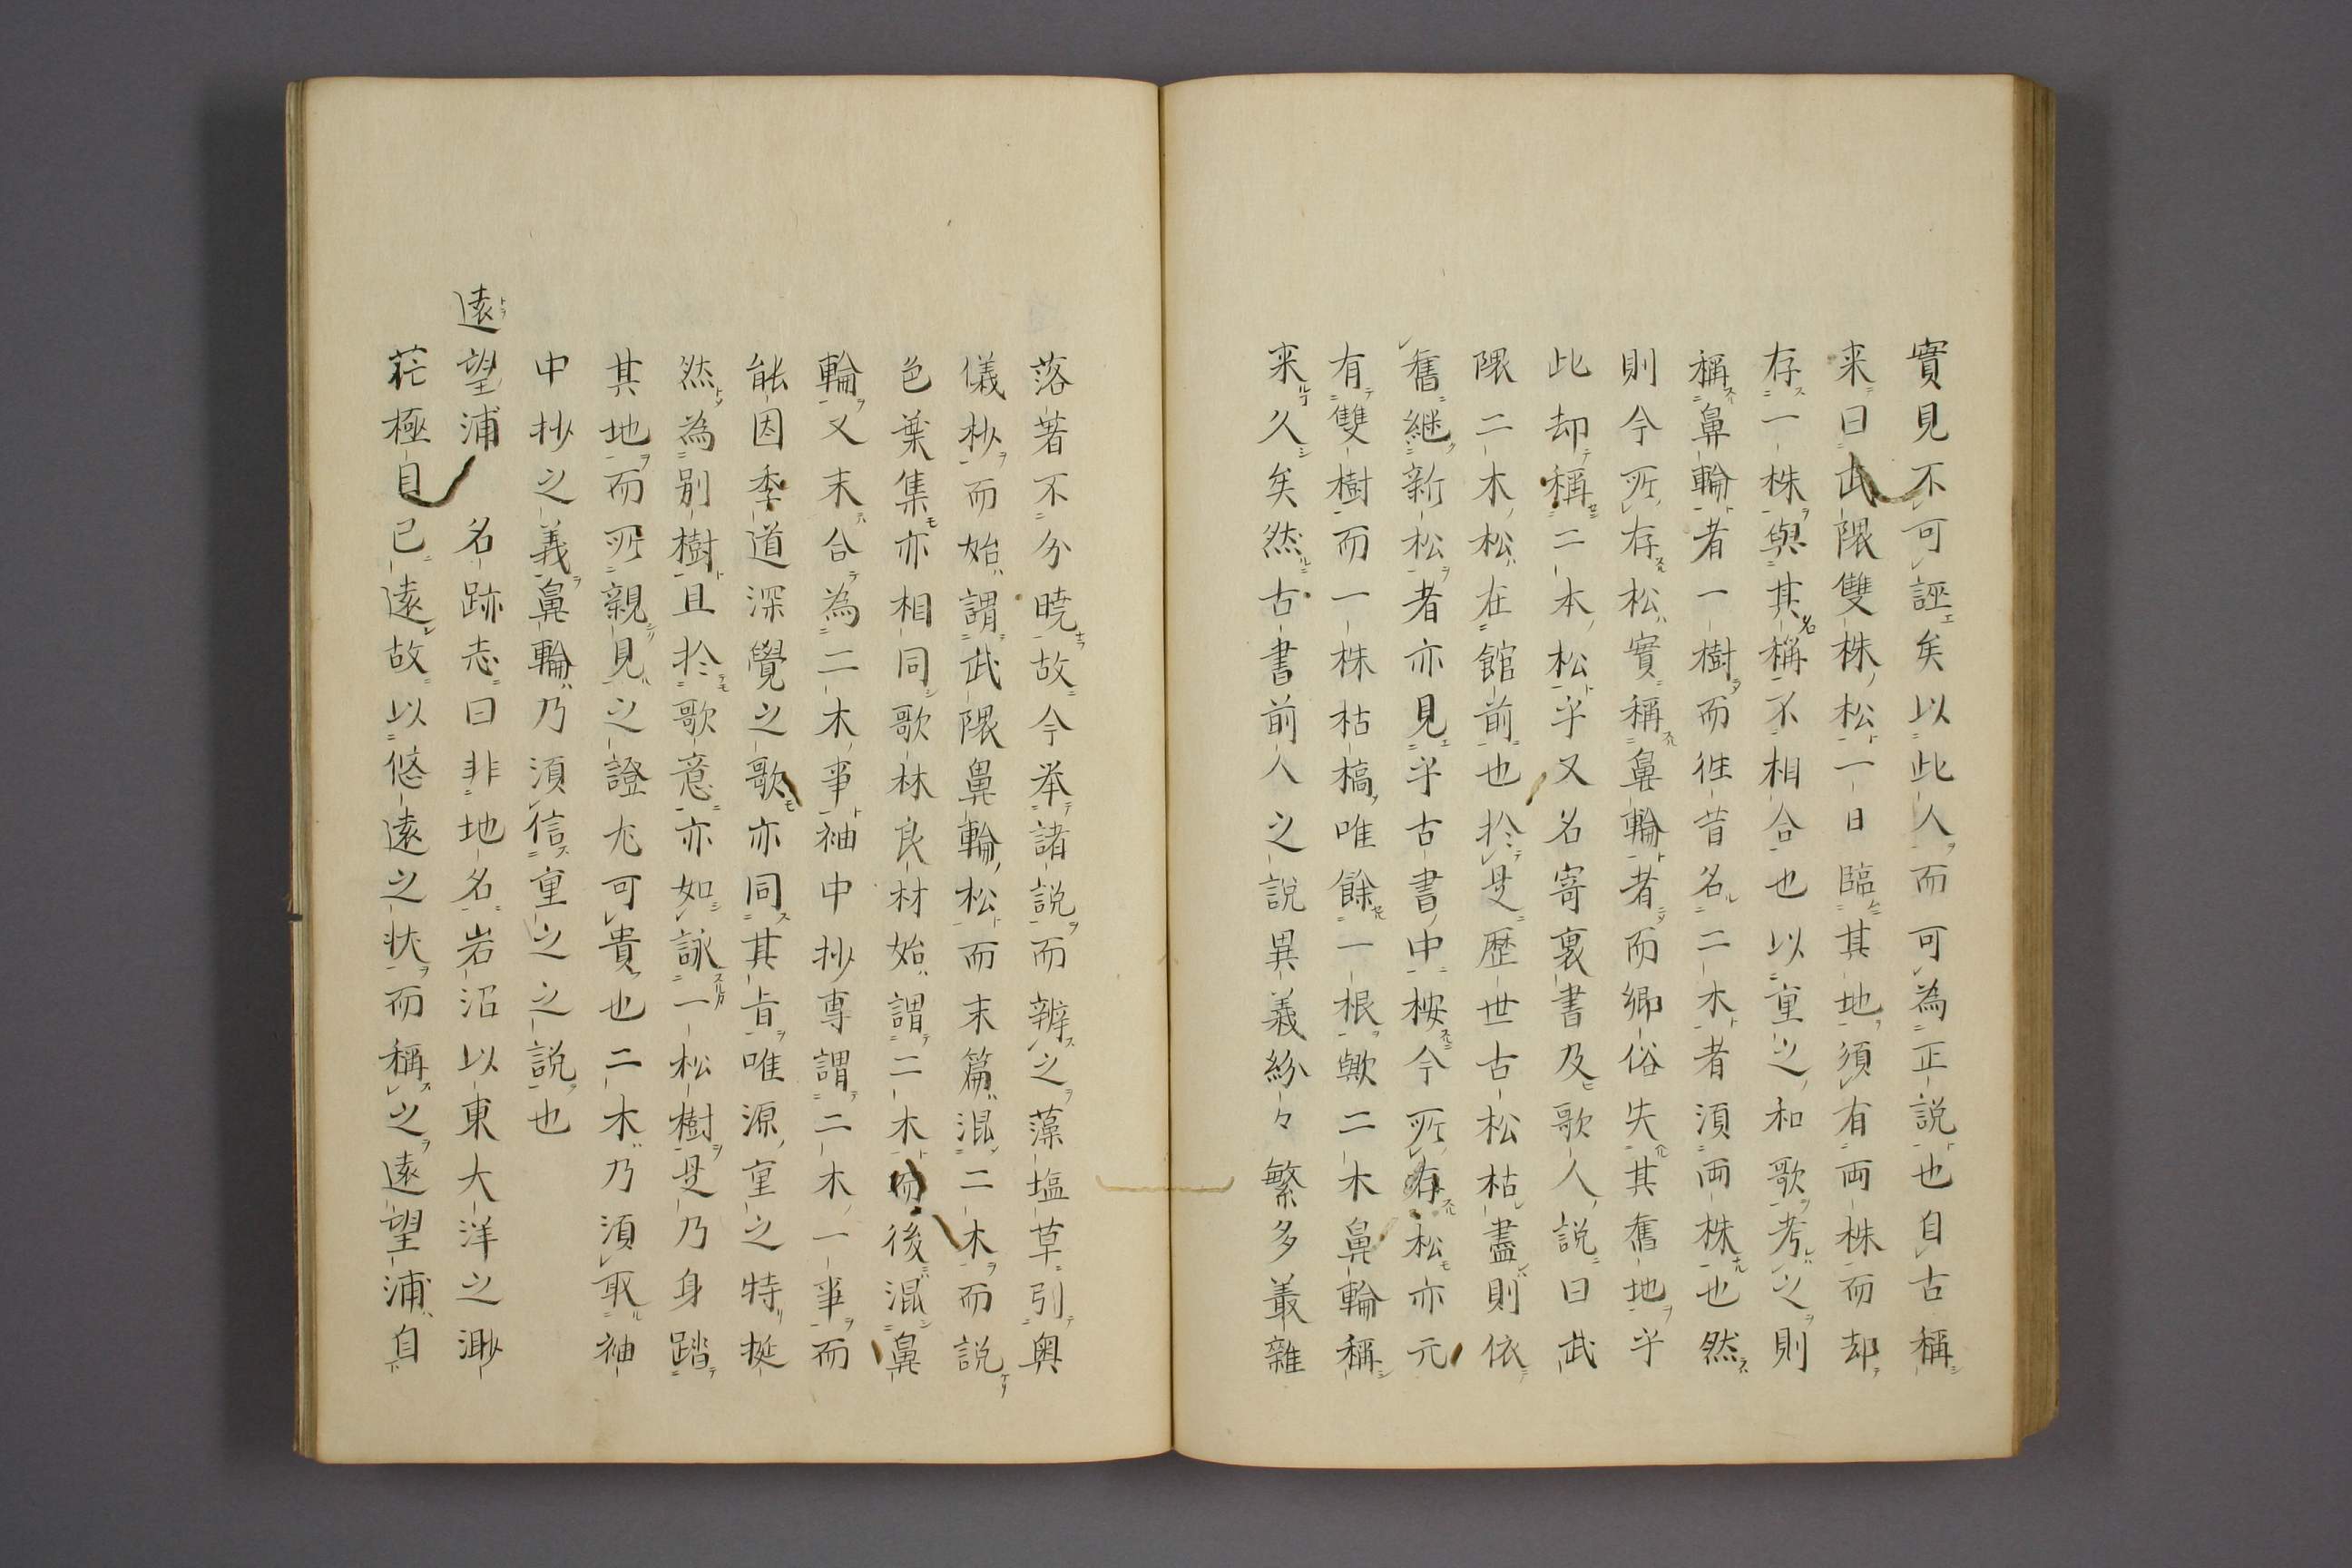 實見不可誣矣以此人而可為正説也自古稱
来曰武隈雙株松一日臨其地須有両株而却
存一株與其稱不相合也以重之和歌考之則
稱鼻輪者一樹而徃昔名二木者須両株也然
則今所存松實稱鼻輪者而郷俗失其舊地乎
此却稱二本松乎又名寄裏書及歌人説曰武
隈二木松在館前也於是歴世古松枯盡則依
舊継新松者亦見乎古書中桉今所存松亦元
有雙樹而一株枯槁唯餘一根歟二木鼻輪稱
来久矣然古書前人之説異義紛々繁多叢雜
落著不分暁故今挙諸説而辨之藻塩草引奥
儀抄而始謂武隈鼻輪松而末篇混二木而説
色葉集亦相同歌林良材始謂二木而後混鼻
輪又末合為二木事袖中抄専謂二木一事而
能因季道深覺之歌亦同其旨唯源重之特挺
然為別樹且於歌意亦如詠一松樹是乃身踏
其地而所親見之證尤可貴也二木乃須取袖
中抄之義鼻輪乃須信重之之説也
遠望浦 名跡志曰非地名岩沼以東大洋之渺
茫極目已遠故以悠遠之状而稱之遠望浦自